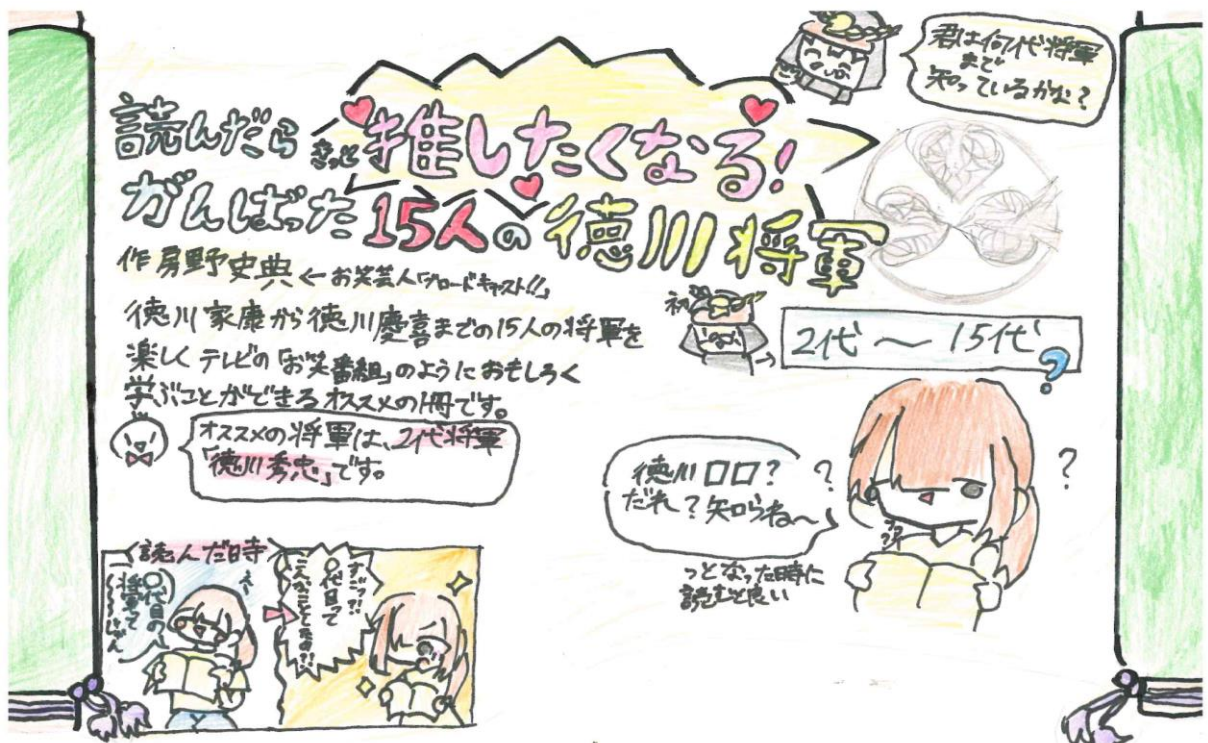 君は何代将軍
まで
知っているかな?
読んだら
きっと
推したくなる!
がんばった15人の徳川将軍
作 房野史典 ← お笑芸人「ブロードキャスト!!」
徳川家康から徳川慶喜までの15人の将軍を
楽しくテレビの「お笑番組」のようにおもしろく
学ぶことができるオススメの1冊です。
オススメの将軍は、2代将軍
「徳川秀忠」です。
初
2代 〜 15代
?
徳川口口?
だれ?知らね〜
?
?
っとなった時に
読むと良い
読んだ時
〇代目の
将軍って
すごっ!!
〇代目って
こんなことしてたの?!